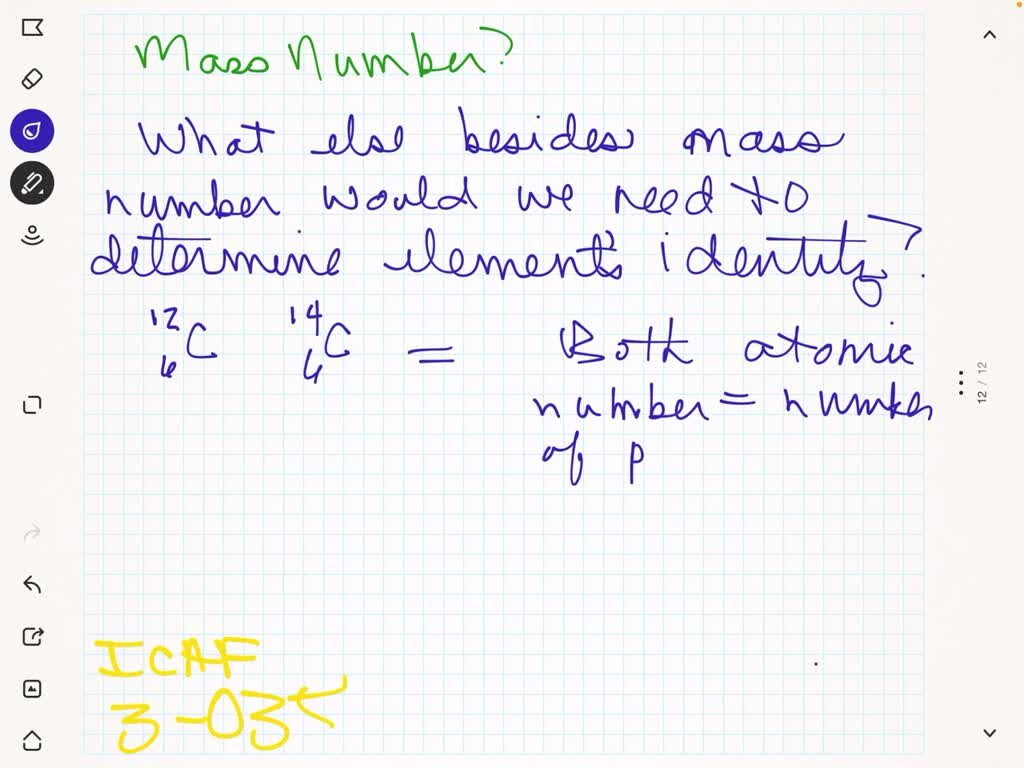 Mass Number?
What else besides mass
number would we need to
determine element's identity?
12 6 C 14 6 C = Both atomic
number = number
of p
12 / 12
ICAF
3-03